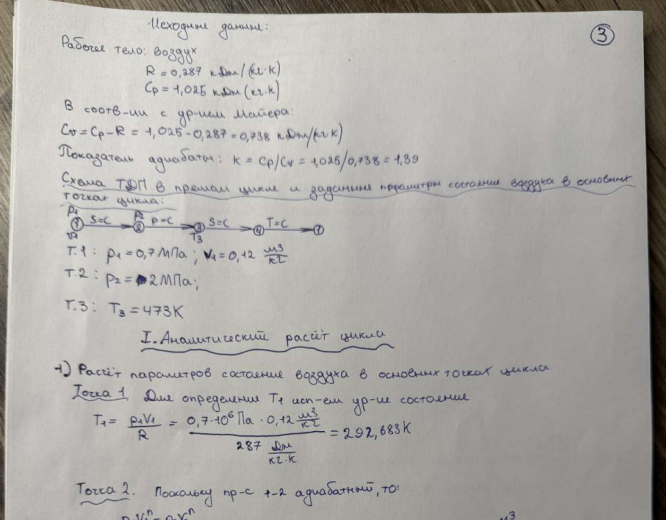 Исходные данные:
3
Рабочее тело: воздух
R = 0,287 кДж/(кг·к)
Cp = 1,025 кДж(кг·к)
В соотв-ии с ур-ием Майера:
Cv = Cp - R = 1,025 - 0,287 = 0,738 кДж/(кг к)
Показатель адиабаты: к = Cp/Cv = 1,025/0,738 = 1,39
Схема ТДП в прямом цикле и заданные параметры состояния воздуха в основных
точках цикла:
P1 P2
1 S=C 2 P=C 3 S=C 4 T=C 1
V1 T3
Т.1: p1 = 0,7 МПа; V1 = 0,12 м3/кг
Т.2: p2 = 2 МПа;
Т.3: T3 = 473К
I. Аналитический расчёт цикла
1) Расчёт параметров состояние воздуха в основных точках цикла
Точка 1. Для определения T1 исп-ем ур-ие состояние
T1 = p1V1/R = 0,7·10⁶ Па · 0,12 м3/кг / 287 Дж/кг·к = 292,683К
Точка 2. Поскольку пр-с 1-2 адиабатный, то: